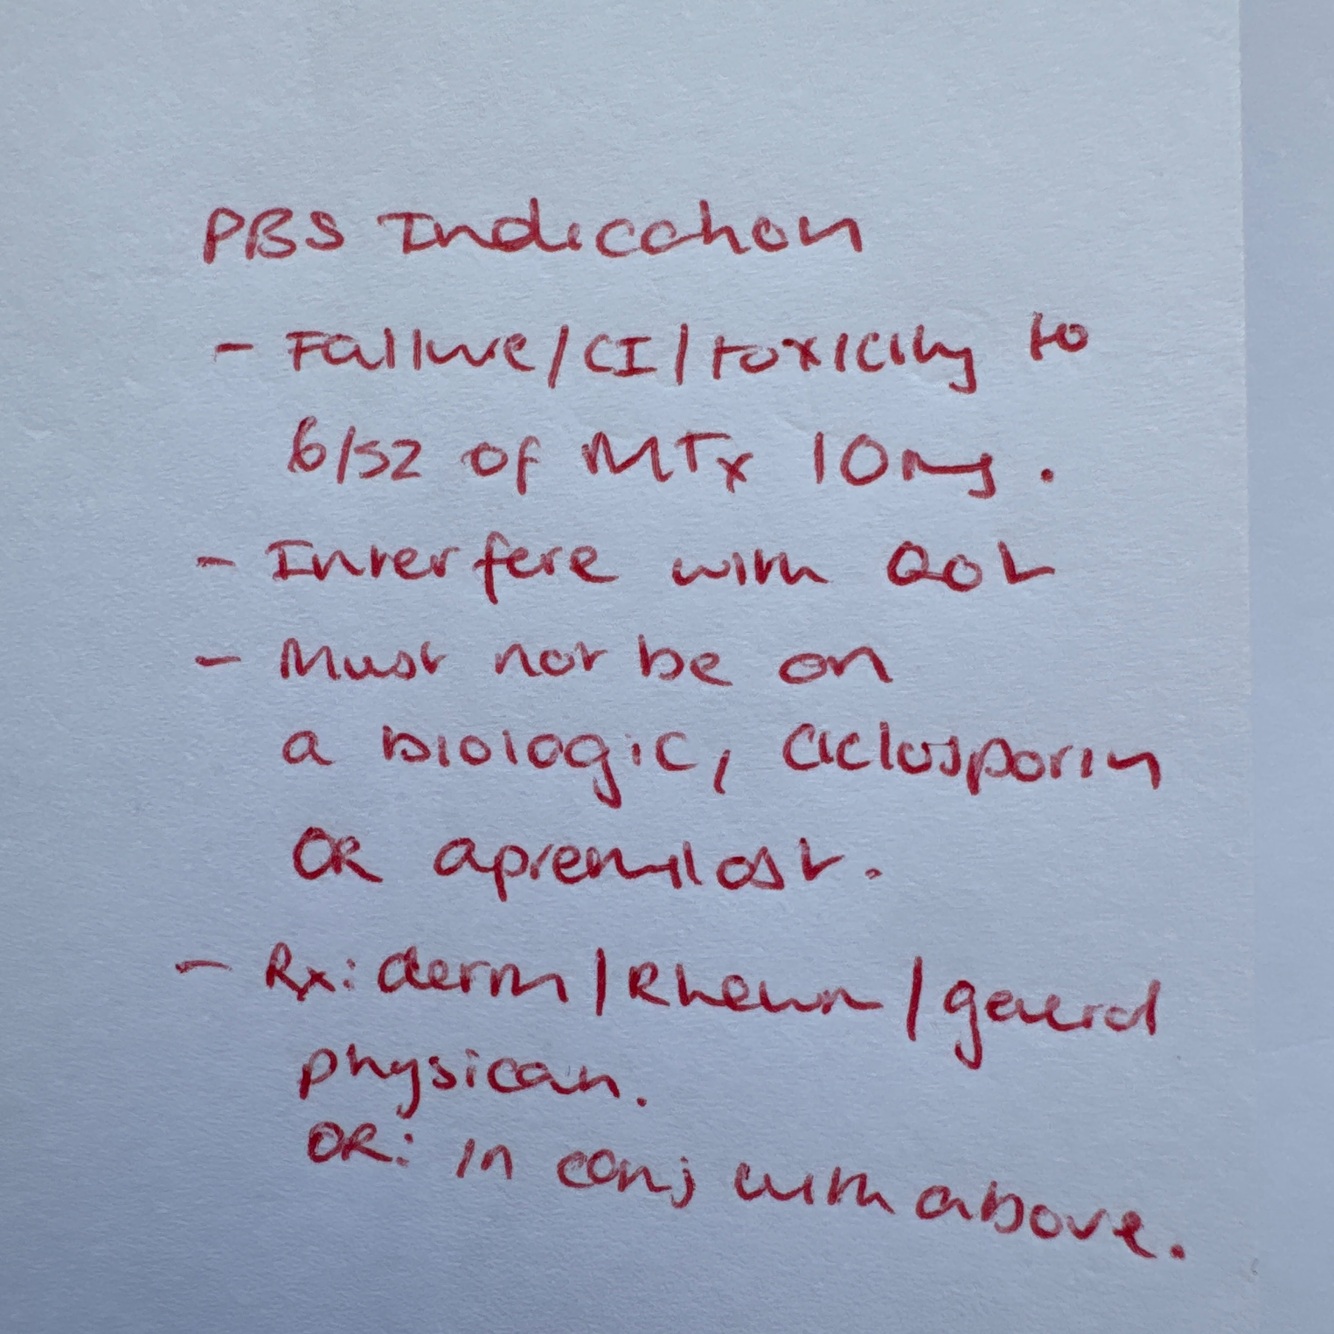 PBS Indication
- Failure/CI/toxicity to
6/52 of MTx 10mg.
- Interfere with QOL
- Must not be on
a biologic, Ciclosporin
OR apremilast.
- Rx: derm/Rheum/general
physican.
OR: in conj with above.